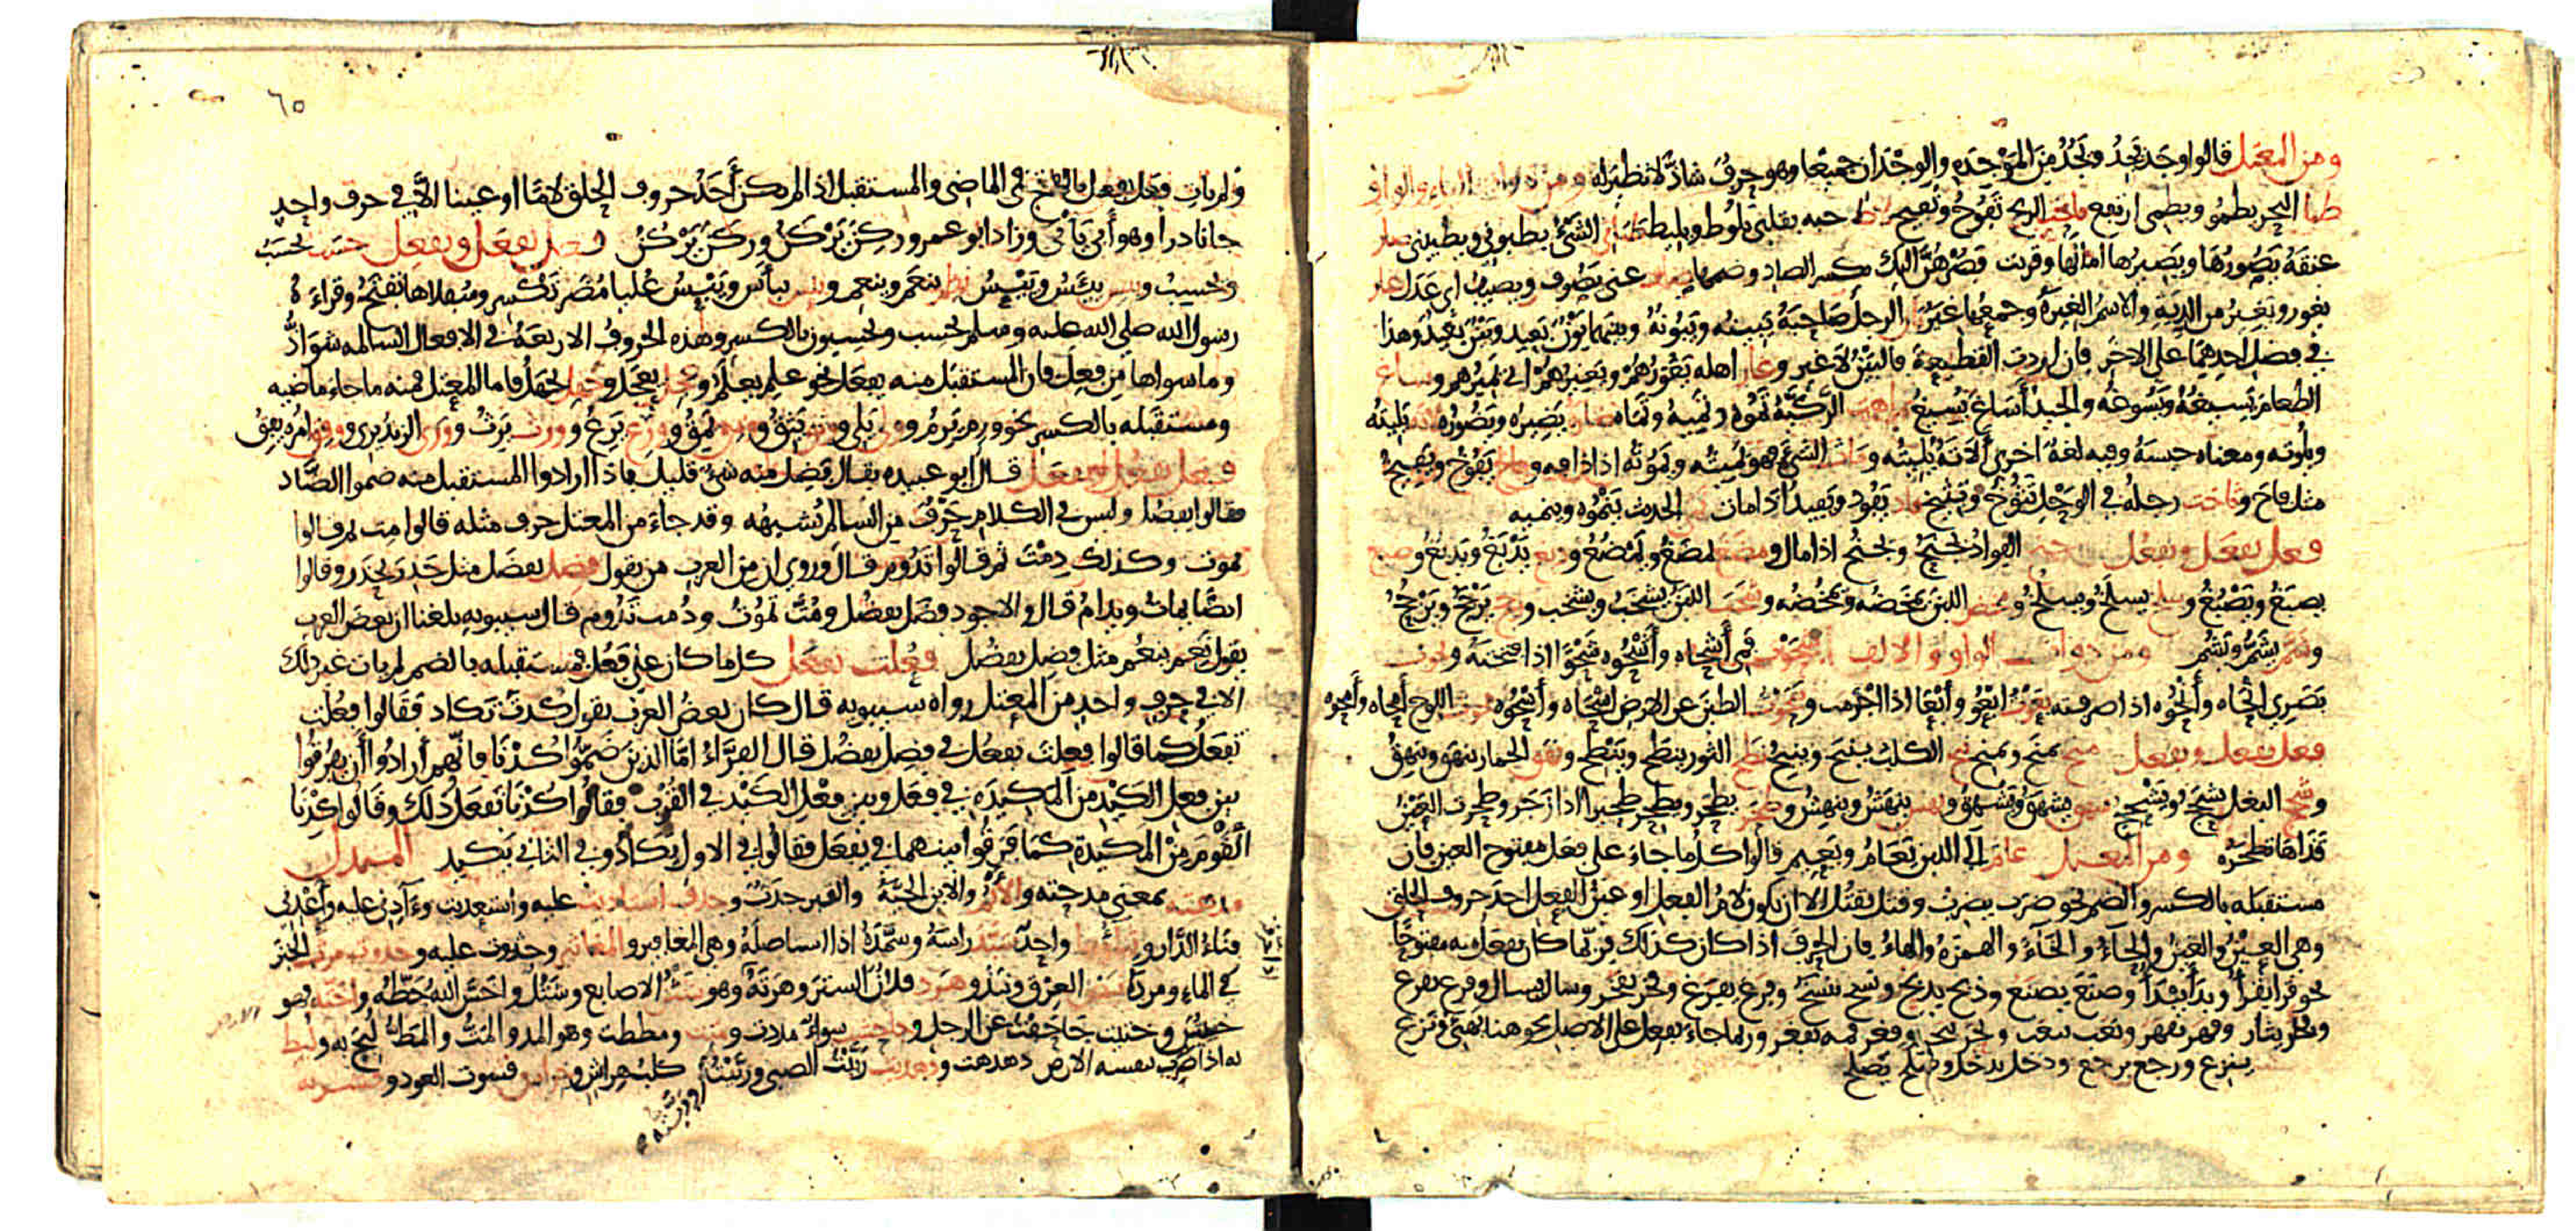 ومن المعتل قالوا وجد يجد ويجد من الموجدة والوجدان جميعا وهو حرف شاذ لا نظير له ومن ذوات الياء والواو
طما البحر يطمو ويطمى ارتفع فاخت الريح تفوح وتفيح لاط حبه بقلبي يلوط ويليط طباني الشيء يطبوني ويطبيني صار
عنقه يصورها ويصيرها امالها وقريت فصرهن اليك بكسر الصاد وضمها صاف عني يصوف ويصيف اي عدل غار
يغور ويغير من الدية والاسم الغيرة وجمعها غير الرجل صاحبه يبينه ويبونه وبينهما بون بعيد وبين بعيد وهذا
في فضل احدهما على الاخر فان اردت القطيعة فالبين لا غير وغار اهله يغورهم ويغيرهم اي يميرهم وساغ
الطعام يسيغه ويسوغه والجيد أساغ يسيغ ماهت الركية تموه وتميه وتماه صار يصيره ويصوره لاته يليته
ويلوته ومعناه حبسه وفيه لغة اخرى ألاته يليته وماث الشيء فهو يميثه ويموثه اذا اذافه وفاح يفوح ويفيح
مثل فاخ وثاخت رجله في الوحل تثوخ وتثيخ فاد يفود ويفيد اذا مات نمى الحديث ينموه وينميه
فعل يفعل ويفعل جنح الفؤاد يجنح ويجنح اذا مال ومضغ يمضغ ويمضغ ودبغ يدبغ ويدبغ وصبغ
يصبغ ويصبغ وسلخ يسلخ ويسلخ ومخض اللبن يمخضه ويمخضه وشخب اللبن يشخب ويشخب ورجح يرجح ويرجح
وشم يشم ويشم ومن ذوات الواو والالف شحوت فمي أشحاه وأشحوه شحوا اذا فتحته ونحوت
بصري انحاه وأنحوه اذا صرفته بعوت ابعو وأبعا اذا اجرمت وسحوت الطين عن الارض اسحاه وأسحوه محوت اللوح أمحاه وأمحوه
فعل يفعل ويفعل منح يمنح ويمنح نبح الكلب ينبح وينبح نطح الثور ينطح وينطح ونهق الحمار ينهق وينهق
وشحج البغل يشحج ويشحج شهق يشهق ويشهق ونهش ينهش وينهش وطحر يطحر ويطحر طحيرا اذا زحر وطحرت العين
قذاها تطحره ومن المعتل عام الى اللبن يعام ويعيم قالوا كل ما جاء على فعل مفتوح العين فان
مستقبله بالكسر والضم نحو ضرب يضرب وقتل يقتل الا ان يكون لام الفعل او عين الفعل احد حروف الحلق
وهي العين والغين والحاء والخاء والهمزة والهاء فان الحرف اذا كان كذلك فربما كان يفعل منه مفتوحا
نحو قرأ يقرأ وبدأ يبدأ وصنع يصنع وذبح يذبح ونسخ ينسخ وفرغ يفرغ وفخر يفخر وسال يسال وفرع يفرع
وثأر يثار وقهر يقهر ونعب ينعب ونحر ينحر وفغر فمه يفغر وربما جاء يفعل على الاصل نحو هنا يهني ونزع
ينزع ورجع يرجع ودخل يدخل وصلح يصلح
٦٥
ولم يات فعل يفعل بالفتح في الماضي والمستقبل اذا لم يكن أحد حروف الحلق لاما او عينا الا في حرف واحد
جا نادرا وهو أبى يأبى وزاد ابو عمرو ركن يركن وركن يركن فعل يفعل ويفعل حسب يحسب
ويحسب ويئس ييئس وييئس نعم ينعم وينعم ويبس ييبس وييبس عليا مضر تكسر وسفلاها تفتح وقراءة
رسول الله صلى الله عليه وسلم يحسب ويحسبون بالكسر وهذه الحروف الاربعة في الافعال السالمه شواذ
وما سواها من فعل فان المستقبل منه يفعل نحو علم يعلم وعجل يعجل وجهل يجهل فاما المعتل فمنه ما جاء ماضيه
ومستقبله بالكسر نحو ورم يرم وولي يلي ووثق يثق وومق يمق وورع يرع وورث يرث ووري الزند يري ووفق امره يفق
فعل يفعل فعل يفعل قال ابو عبيده يقال فضل منه شيء قليل فاذا ارادوا المستقبل منه ضموا الضاد
فقالوا يفضل وليس في الكلام حرف من السالم يشبهه وقد جاء من المعتل حرف مثله قالوا مت ثم قالوا
تموت وكذلك دمت ثم قالوا تدوم قال وروي ان من العرب من يقول فضل يفضل مثل حذر يحذر وقالوا
ايضا يمات ويدام قال والاجود فضل يفضل ومت تموت ودمت تدوم قال سيبويه بلغنا ان بعض العرب
يقول نعم ينعم مثل فضل يفضل فعلت تفعل كل ما كان على فعل فمستقبله بالضم لم يات غير ذلك
الا في حرف واحد من المعتل رواه سيبويه قال كان بعض العرب يقول كدت تكاد فقالوا فعلت
تفعل كما قالوا فعلت تفعل في فضل يفضل قال الفراء اما الذين ضموا كدنا فانهم أرادوا أن يفرقوا
بين فعل الكيد من المكيدة في فعل وبين فعل الكيد في القرب فقالوا كدنا نفعل ذلك وقالوا كدنا
القوم من المكيدة كما فرقوا بينهما في يفعل فقالوا في الاول يكاد وفي الثاني يكيد المبدل
مدهته بمعنى مدحته والأيم والاين الحية والقبر جدث وجدف استاديت عليه واستعديت وءآدني عليه وأعدني
فناء الدار وثناؤها واحد سبد راسه وسمده اذا استاصله وهي المغافير والمغاثير وجذوت عليه وجثوت مرث الخبز
في الماء ومرده نبض العرق ونبذ وهرد فلان الستر وهرته وهو شثن الاصابع وشثل واخس الله حظه واخته فهو
خسيس وختيت جاحفت عن الرجل وجاحشت سواء مددت ومتت ومططت وهو المد والمت والمط لبج به ولبط
به اذا ضرب بنفسه الارض دهدهت ودهديت ربت الصبي وربتت كلب هراش وخراش قسوت العود وقشرته
او ربته